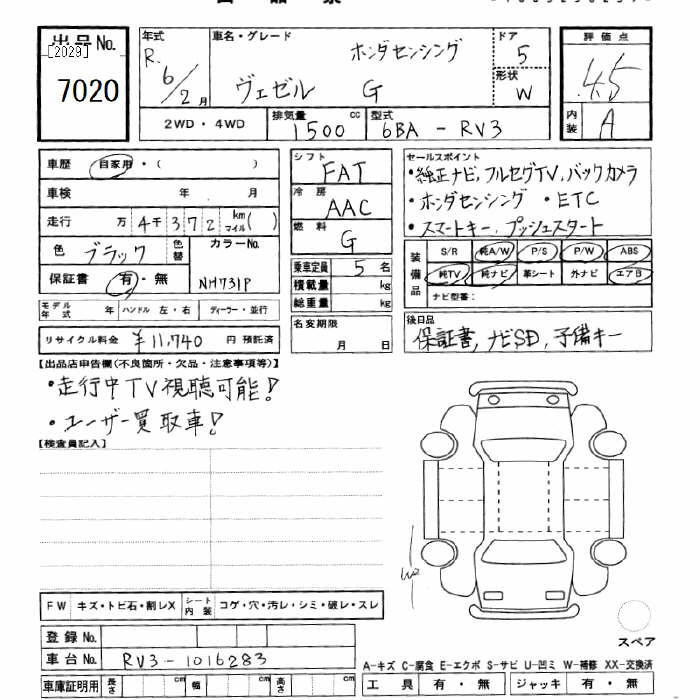 出品No.
[2029]
7020
年式
R. 6/2 月
車名・グレード
ホンダセンシング
ヴェゼル G
ドア
5
形状
W
評価点
4.5
内装
A
2WD・4WD
排気量 cc
1500
型式
6BA - RV3
車歴 自家用・( )
車検 年 月
走行 万 4千 3 7 2 km マイル( )
色 ブラック 色替
カラーNo.
NH731P
保証書 有・無
モデル年式 年 ハンドル 左・右 ディーラー・並行
リサイクル料金 ¥11,740 円 預託済
シフト
FAT
冷房
AAC
燃料
G
乗車定員 5 名
積載量 kg
総重量 kg
名変期限
月 日
セールスポイント
・純正ナビ, フルセグTV, バックカメラ
・ホンダセンシング ・ETC
・スマートキー, プッシュスタート
装備品
S/R 純A/W P/S P/W ABS
純TV 純ナビ 革シート 外ナビ エアB
ナビ型番:
後日品
保証書, ナビSD, 予備キー
【出品店申告欄(不良箇所・欠品・注意事項等)】
・走行中TV視聴可能!
・ユーザー買取車!
【検査員記入】
W2
FW キズ・トビ石・割レX
シート内装 コゲ・穴・汚レ・シミ・破レ・スレ
登録No.
車台No. RV3-1016283
車庫証明用 長さ cm 幅 cm 高さ cm
スペア
A-キズ C-腐食 E-エクボ S-サビ U-凹ミ W-補修 XX-交換済
工具 有・無 ジャッキ 有・無